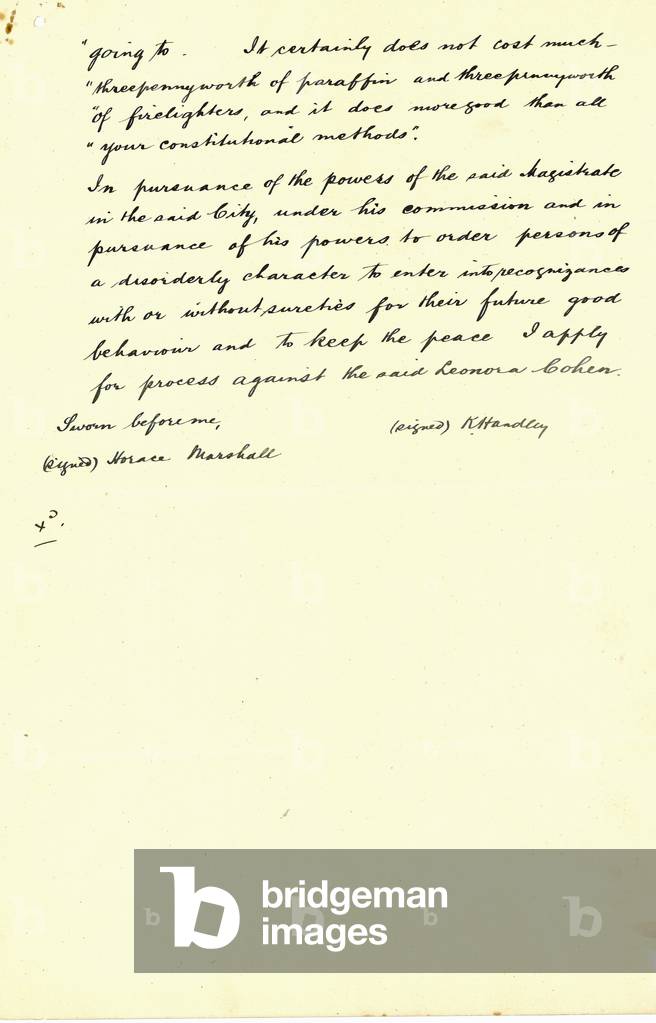 "going to. It certainly does not cost much -
"threepennyworth of paraffin and threepennyworth
"of firelighters, and it does more good than all
"your constitutional methods".
In pursuance of the powers of the said Magistrate
in the said City, under his commission and in
pursuance of his powers to order persons of
a disorderly character to enter into recognizances
with or without sureties for their future good
behaviour and to keep the peace I apply
for process against the said Leonora Cohen.
Sworn before me,
(signed) K. Handley
(signed) Horace Marshall
b bridgeman
images